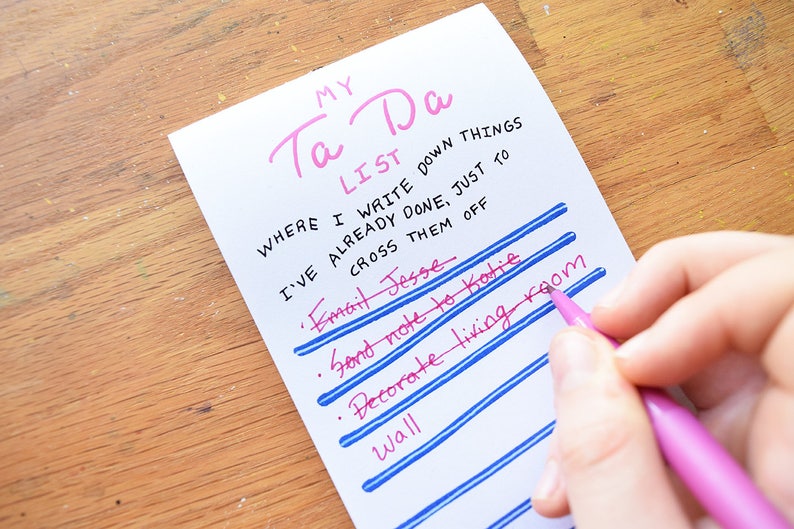 MY
Ta Da
LIST
WHERE I WRITE DOWN THINGS
I'VE ALREADY DONE, JUST TO
CROSS THEM OFF
· Email Jesse
· Send note to Katie
· Decorate living room
wall